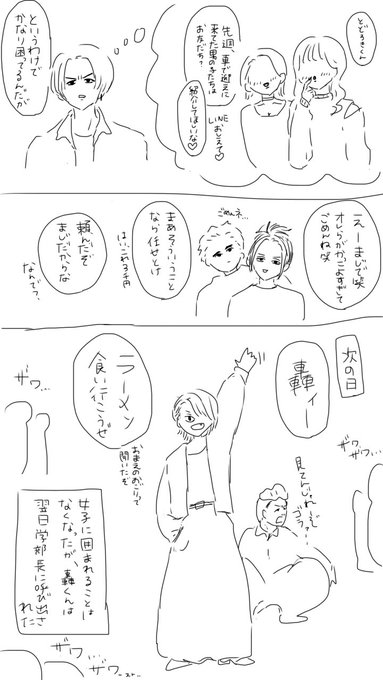 とどろきくん
先週、車で迎えに
来てた男の子たちは
おともだち？
紹介してほしいな♡
LINE
おしえて♡
というわけで
かなり困ってるんだが
えーまじで笑
オレらがかっこよすぎて
ごめんね笑
ごめんネ…
まあそういうこと
なら任せとけ
はいこれ3千円
頼んだぞ
まじだからな
なんで？
次の日
轟ィー
ラーメン
食い行こうぜ
おまえのおごりって
聞いたぞ
見てんじゃねーぞ
ゴラァ…
ザワ…
ザワ、
ザワ…
女子に囲まれることは
なくなったが、轟くんは
翌日学部長に呼び出さ
れた
ザワ…
ザワ…